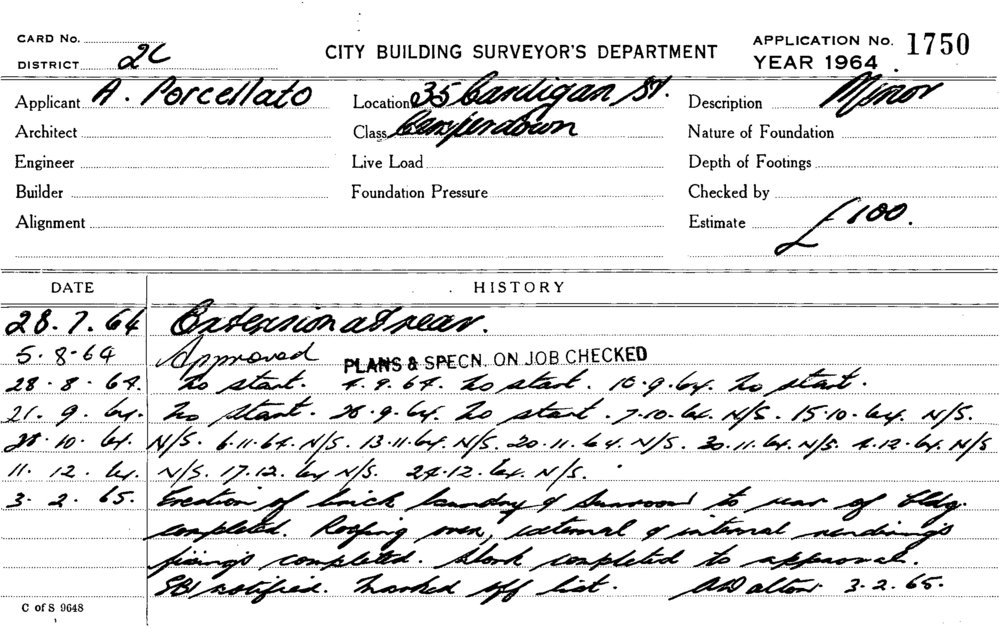 CARD No.
DISTRICT 2C
CITY BUILDING SURVEYOR'S DEPARTMENT
APPLICATION No. 1750
YEAR 1964.
Applicant A. Porcellato Location 35 Cardigan St. Description Minor
Architect Class Camperdown Nature of Foundation
Engineer Live Load Depth of Footings
Builder Foundation Pressure Checked by
Alignment Estimate £100.
DATE HISTORY
28.7.64 Extension at rear.
5.8.64 Approved PLANS & SPECN. ON JOB CHECKED
28.8.64. No start. 4.9.64. No start. 10.9.64. No start.
21.9.64. No start. 28.9.64. No start. 7.10.64. N/S. 15.10.64. N/S.
28.10.64. N/S. 6.11.64. N/S. 13.11.64. N/S. 20.11.64. N/S. 30.11.64. N/S. 4.12.64. N/S
11.12.64. N/S. 17.12.64 N/S. 24.12.64. N/S.
3.2.65. Erection of brick laundry & Sunroom to rear of bldg.
completed. Roofing over, external & internal renderings
fixings completed. Work completed to approval.
notified. Marked off list. Dalton 3.2.65.
C of S 9648